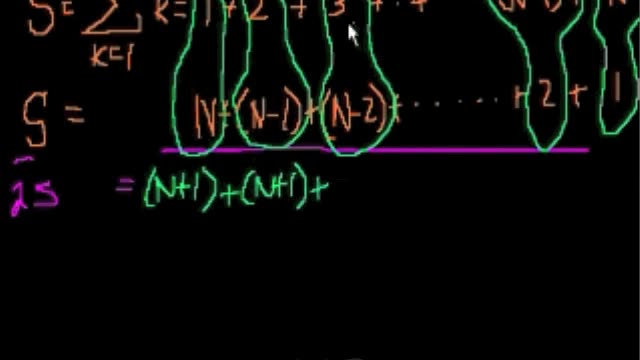 S = ∑ k = 1 + 2 + 3 + . . +
k=1
S = N + (N-1) + (N-2) + ....... + 2 + 1
2S = (N+1) + (N+1) +